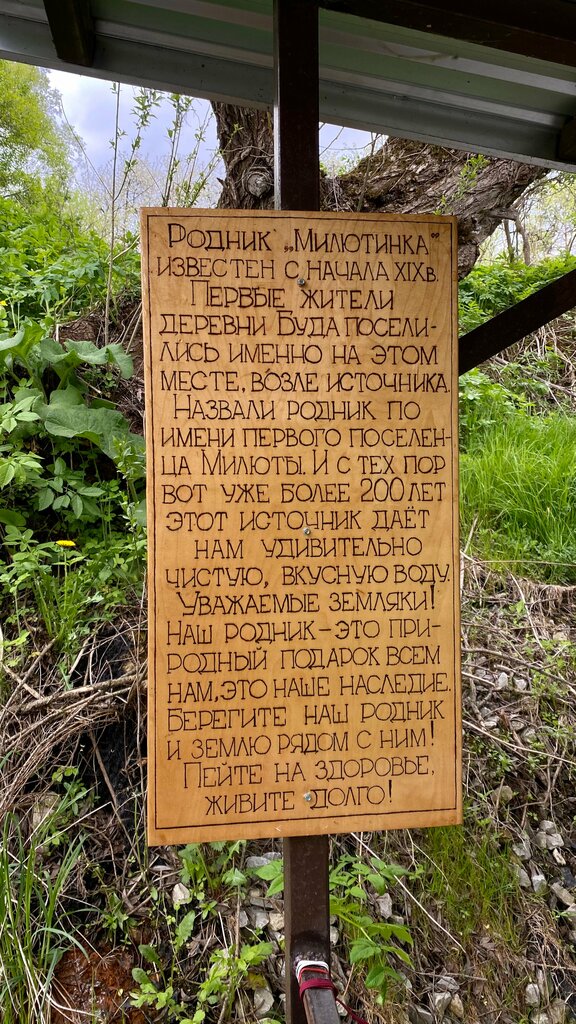 Родник „Милютинка“
известен с начала XIX в.
Первые жители
деревни Буда посели-
лись именно на этом
месте, возле источника.
Назвали родник по
имени первого поселен-
ца Милюты. И с тех пор
вот уже более 200 лет
этот источник даёт
нам удивительно
чистую, вкусную воду.
Уважаемые земляки!
Наш родник – это при-
родный подарок всем
нам, это наше наследие.
Берегите наш родник
и землю рядом с ним!
Пейте на здоровье,
живите долго!